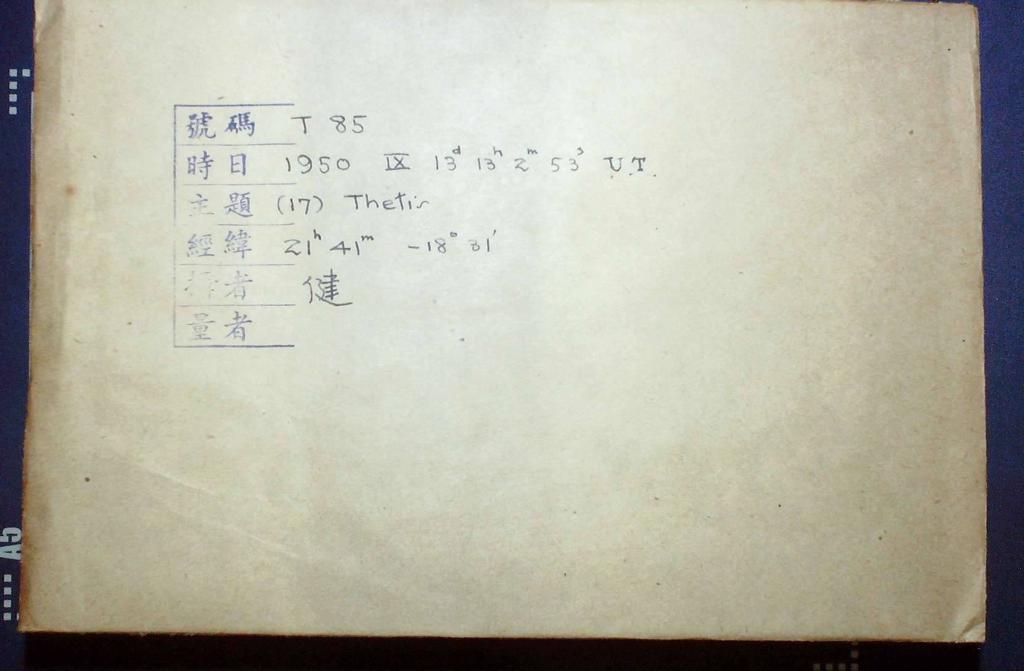 號碼 T 85
時日 1950 IX 13ᵈ 13ʰ 2ᵐ 53ˢ U.T.
主題 (17) Thetis
經緯 21ʰ 41ᵐ -18° 31'
者 健
量者
A5